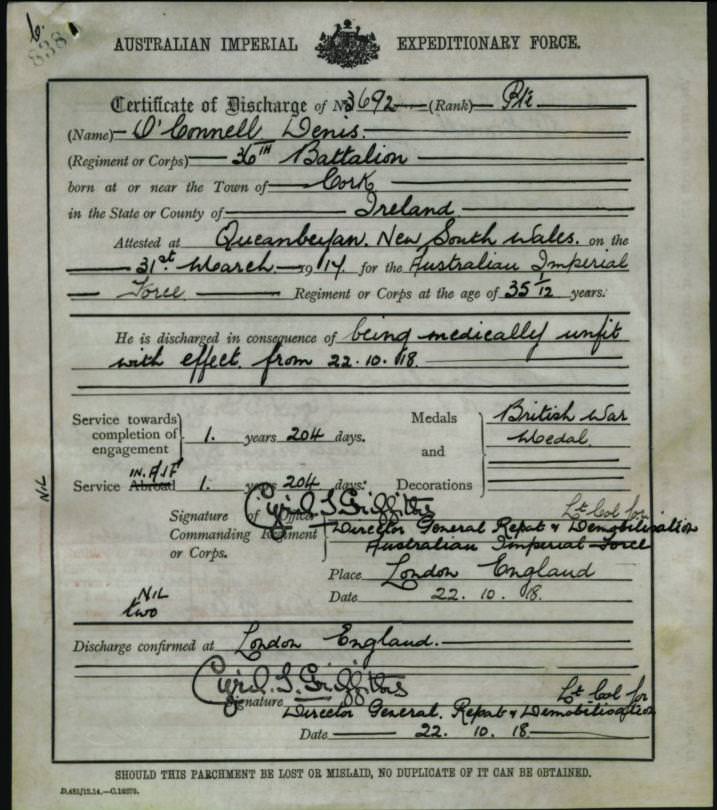 6.
838
AUSTRALIAN IMPERIAL EXPEDITIONARY FORCE.
Certificate of Discharge of No 3692 (Rank) Pte
(Name) O'Connell Denis.
(Regiment or Corps) 36TH Battalion
born at or near the Town of Cork
in the State or County of Ireland
Attested at Queanbeyan. New South Wales. on the
31st March 1917. for the Australian Imperial
Force Regiment or Corps at the age of 35 1/12 years.
He is discharged in consequence of being medically unfit
with effect from 22.10.18.
Service towards completion of engagement } 1. years 204 days.
Medals and Decorations } British War Medal
IN AIF
Service Abroad 1. years 204 days.
NIL
Signature of Officer Commanding Regiment or Corps. } Cyril S. Griffiths Lt Col for
Director General Repat & Demobilisation
Australian Imperial Force
Place London England
Date 22. 10. 18.
NIL
two
Discharge confirmed at London England.
Cyril S. Griffiths
Signature Lt Col for
Director General. Repat & Demobilisation
Date 22. 10. 18.
SHOULD THIS PARCHMENT BE LOST OR MISLAID, NO DUPLICATE OF IT CAN BE OBTAINED.